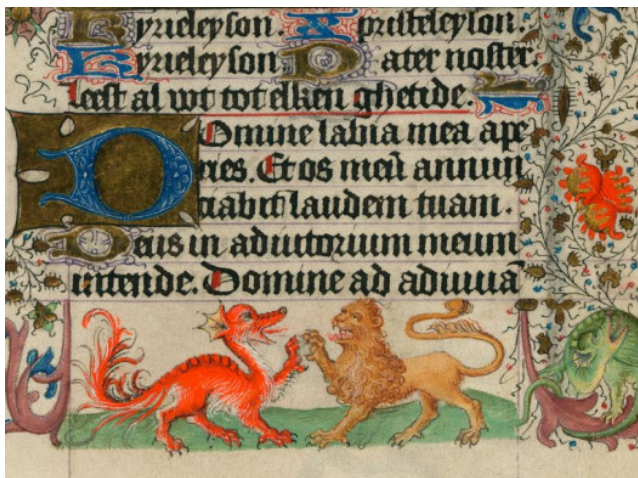 Kyrieleyson. Xpristeleyson.
Kyrieleyson Pater noster.
Leest al wt tot elken ghetide.
Domine labia mea ape
ries. Et os meū annun
ciabit laudem tuam.
Deus in adiutorium meum
intende. Domine ad adiuuā